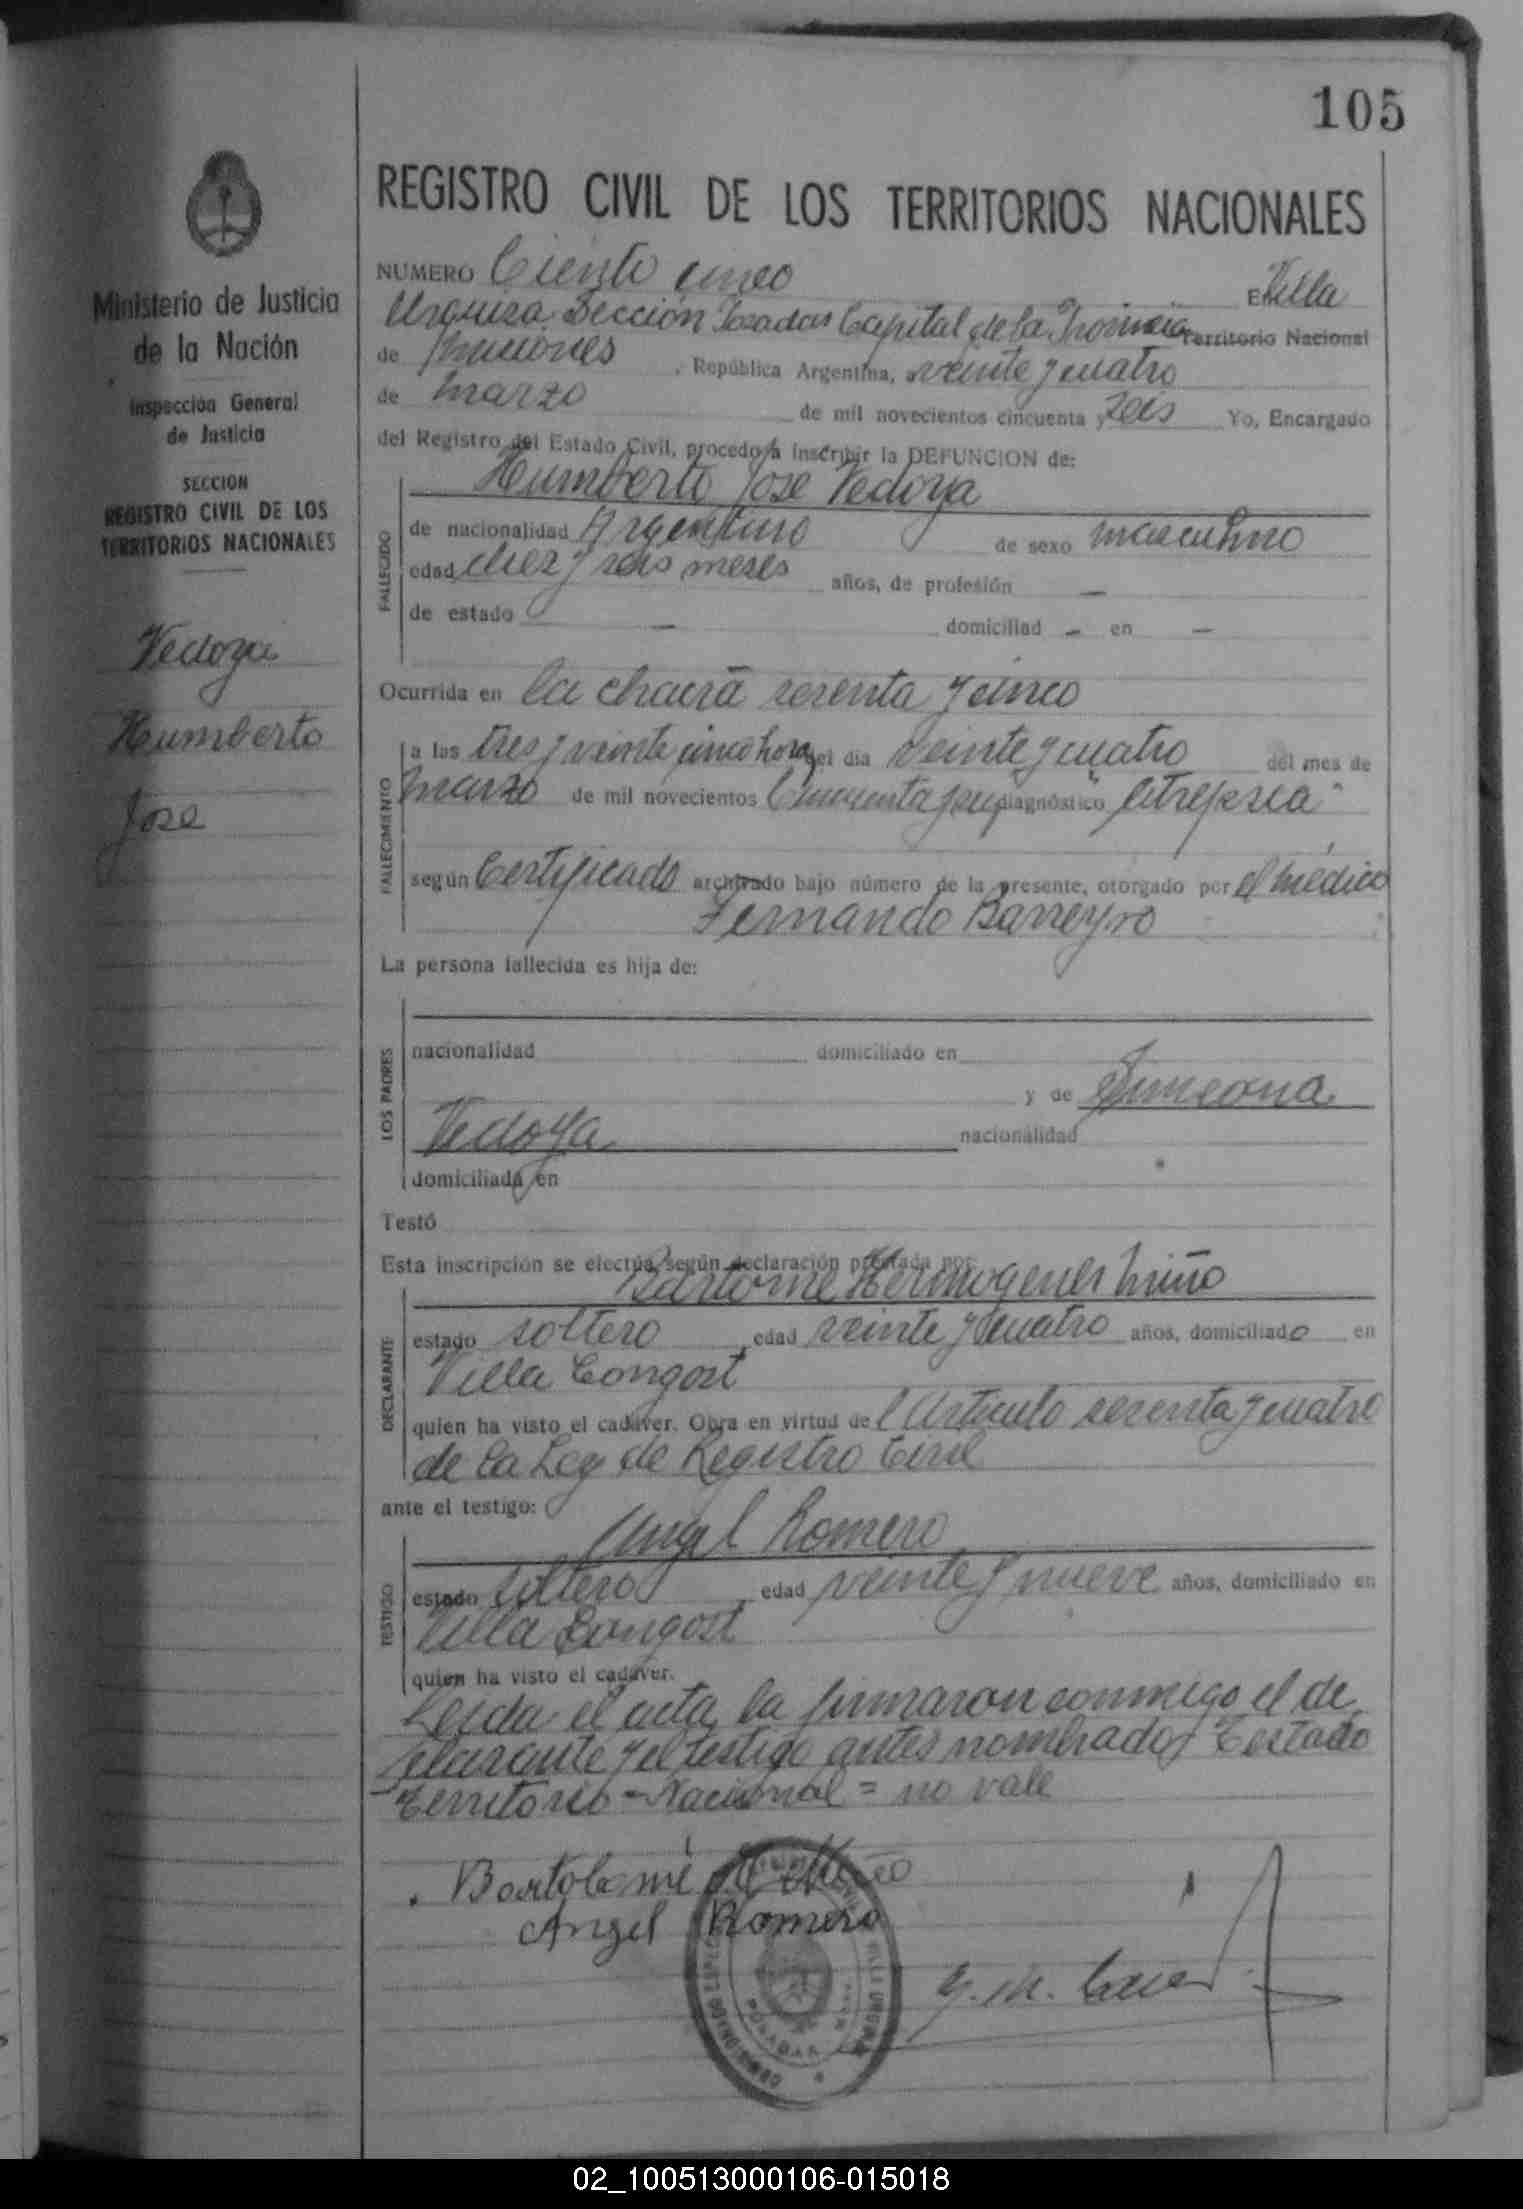 105
REGISTRO CIVIL DE LOS TERRITORIOS NACIONALES
Ministerio de Justicia
de la Nación
Inspección General
de Justicia
SECCION
REGISTRO CIVIL DE LOS
TERRITORIOS NACIONALES
Vedoya
Humberto
Jose
NUMERO Ciento cinco En Villa
Urquiza Sección Posadas Capital de la Provincia Territorio Nacional
de Misiones , República Argentina, a veinte y cuatro
de marzo de mil novecientos cincuenta y seis Yo, Encargado
del Registro del Estado Civil, procedo a inscribir la DEFUNCION de:
Humberto Jose Vedoya
FALLECIDO
de nacionalidad Argentino de sexo masculino
edad diez y seis meses años, de profesión —
de estado — domiciliad - en —
Ocurrida en la chacra sesenta y cinco
FALLECIMIENTO
a las tres y veinte cinco horas del día veinte y cuatro del mes de
marzo de mil novecientos Cincuenta y seis diagnóstico "Atrepsia"
según Certificado archivado bajo número de la presente, otorgado por el médico
Fernando Barreyro
La persona fallecida es hija de:
LOS PADRES
nacionalidad domiciliado en
y de Simeona
Vedoya nacionalidad
domiciliada en
Testó
Esta inscripción se efectúa según declaración prestada por:
Bartome Hermogenes Miño
DECLARANTE
estado soltero , edad veinte y cuatro años, domiciliado en
Villa Longost
quien ha visto el cadáver. Obra en virtud del Artículo sesenta y cuatro
de la Ley de Registro Civil
ante el testigo:
Angel Romero
TESTIGO
estado soltero , edad veinte y nueve años, domiciliado en
Villa Longost
quien ha visto el cadáver.
Leida el acta, la firmaron conmigo el de
clarante y el testigo antes nombrados Testado
-Territorio - Nacional = no vale
Bartolomé H Miño
Angel Romero
POSADAS
02_100513000106-015018